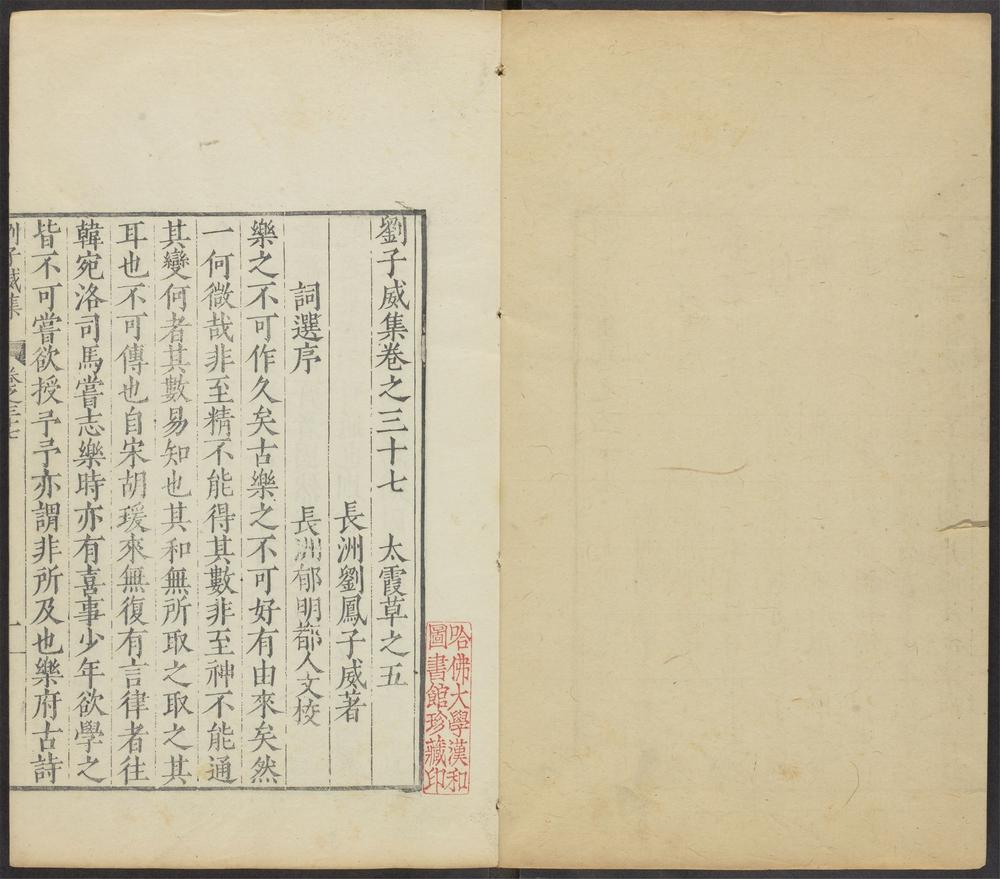 劉子威集卷之三十七　太霞草之五
長洲劉鳳子威著
詞選序　長洲郁明都人文校
樂之不可作久矣古樂之不可好有由來矣然
一何微哉非至精不能得其數非至神不能通
其變何者其數易知也其和無所取之取之其
耳也不可傳也自宋胡瑗來無復有言律者往
韓宛洛司馬嘗志樂時亦有喜事少年欲學之
皆不可嘗欲授予予亦謂非所及也樂府古詩
劉子威集　卷之三十七　一
哈佛大學漢和
圖書館珍藏印